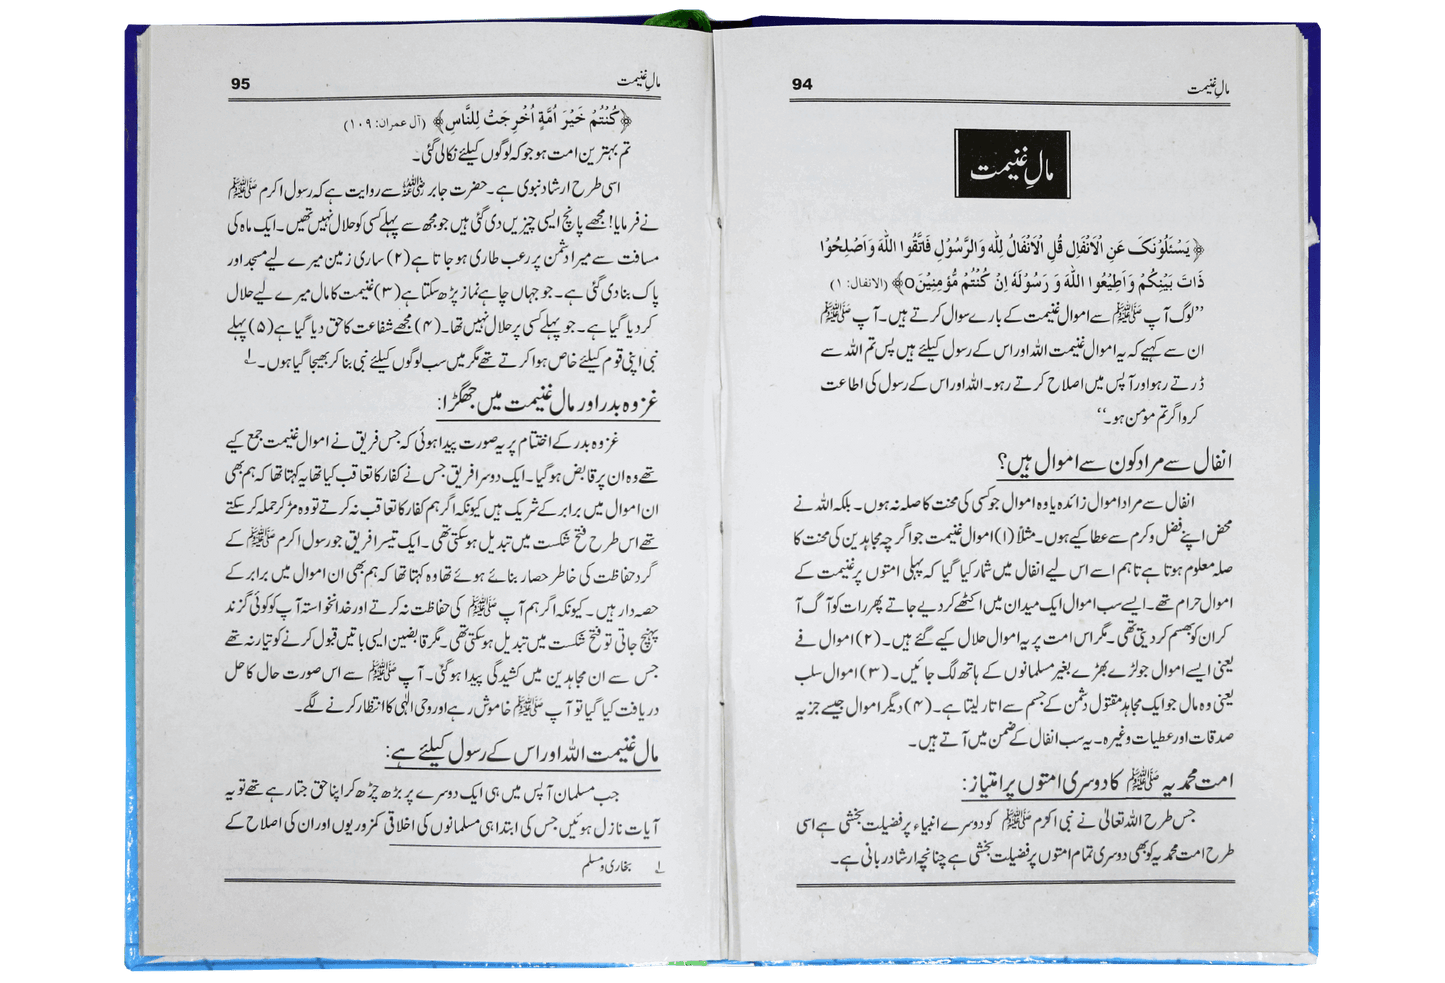 مالِ غنیمت
94
مالِ غنیمت
﴿یَسْئَلُوْنَکَ عَنِ الْاَنْفَالِ قُلِ الْاَنْفَالُ لِلّٰہِ وَالرَّسُوْلِ فَاتَّقُوا اللّٰہَ وَاَصْلِحُوْا
ذَاتَ بَیْنِکُمْ وَاَطِیْعُوا اللّٰہَ وَ رَسُوْلَہٗ اِنْ کُنْتُمْ مُّؤْمِنِیْنَo﴾ (الانفال: ۱)
’’لوگ آپ ﷺ سے اموال غنیمت کے بارے سوال کرتے ہیں۔ آپ ﷺ
ان سے کہیے کہ یہ اموال غنیمت اللہ اور اس کے رسول کیلئے ہیں پس تم اللہ سے
ڈرتے رہو اور آپس میں اصلاح کرتے رہو۔ اللہ اور اس کے رسول کی اطاعت
کرو اگر تم مومن ہو۔‘‘
انفال سے مراد کون سے اموال ہیں؟
انفال سے مراد اموال زائدہ یا وہ اموال جو کسی کی محنت کا صلہ نہ ہوں۔ بلکہ اللہ نے
محض اپنے فضل وکرم سے عطا کیے ہوں۔ مثلاً (۱) اموال غنیمت جو اگرچہ مجاہدین کی محنت کا
صلہ معلوم ہوتا ہے تاہم اسے اس لیے انفال میں شمار کیا گیا کہ پہلی امتوں پر غنیمت کے
اموال حرام تھے۔ ایسے سب اموال ایک میدان میں اکٹھے کر دیے جاتے پھر رات کو آگ آ
کر ان کو بھسم کر دیتی تھی۔ مگر اس امت پر یہ اموال حلال کیے گئے ہیں۔ (۲) اموال فے
یعنی ایسے اموال جو لڑے بھڑے بغیر مسلمانوں کے ہاتھ لگ جائیں۔ (۳) اموال سلب
یعنی وہ مال جو ایک مجاہد مقتول دشمن کے جسم سے اتار لیتا ہے۔ (۴) دیگر اموال جیسے جزیہ
صدقات اور عطیات وغیرہ۔ یہ سب انفال کے ضمن میں آتے ہیں۔
امت محمدیہ ﷺ کا دوسری امتوں پر امتیاز:
جس طرح اللہ تعالیٰ نے نبی اکرم ﷺ کو دوسرے انبیاء پر فضیلت بخشی ہے اسی
طرح امت محمدیہ کو بھی دوسری تمام امتوں پر فضیلت بخشی ہے چنانچہ ارشاد ربانی ہے۔
مالِ غنیمت
95
﴿کُنْتُمْ خَیْرَ اُمَّۃٍ اُخْرِجَتْ لِلنَّاسِ﴾ (آل عمران: ۱۰۹)
تم بہترین امت ہو جو کہ لوگوں کیلئے نکالی گئی۔
اسی طرح ارشاد نبوی ہے۔ حضرت جابر رضی اللہ عنہ سے روایت ہے کہ رسول اکرم ﷺ
نے فرمایا! مجھے پانچ ایسی چیزیں دی گئی ہیں جو مجھ سے پہلے کسی کو حلال نہیں تھیں۔ ایک ماہ کی
مسافت سے میرا دشمن پر رعب طاری ہو جاتا ہے (۲) ساری زمین میرے لیے مسجد اور
پاک بنا دی گئی ہے۔ جو جہاں چاہے نماز پڑھ سکتا ہے (۳) غنیمت کا مال میرے لیے حلال
کر دیا گیا ہے۔ جو پہلے کسی پر حلال نہیں تھا۔ (۴) مجھے شفاعت کا حق دیا گیا ہے (۵) پہلے
نبی اپنی قوم کیلئے خاص ہوا کرتے تھے مگر میں سب لوگوں کیلئے نبی بنا کر بھیجا گیا ہوں۔ ۱؎
غزوہ بدر اور مال غنیمت میں جھگڑا:
غزوہ بدر کے اختتام پر یہ صورت پیدا ہوئی کہ جس فریق نے اموال غنیمت جمع کیے
تھے وہ ان پر قابض ہو گیا۔ ایک دوسرا فریق جس نے کفار کا تعاقب کیا تھا یہ کہتا تھا کہ ہم بھی
ان اموال میں برابر کے شریک ہیں کیونکہ اگر ہم کفار کا تعاقب نہ کرتے تو وہ مڑ کر حملہ کر سکتے
تھے اس طرح فتح شکست میں تبدیل ہو سکتی تھی۔ ایک تیسرا فریق جو رسول اکرم ﷺ کے
گرد حفاظت کی خاطر حصار بنائے ہوئے تھا وہ کہتا تھا کہ ہم بھی ان اموال میں برابر کے
حصہ دار ہیں۔ کیونکہ اگر ہم آپ ﷺ کی حفاظت نہ کرتے اور خدانخواستہ آپ کو کوئی گزند
پہنچ جاتی تو فتح شکست میں تبدیل ہو سکتی تھی۔ مگر قابضین ایسی باتیں قبول کرنے کو تیار نہ تھے
جس سے ان مجاہدین میں کشیدگی پیدا ہو گئی۔ آپ ﷺ سے اس صورت حال کا حل
دریافت کیا گیا تو آپ ﷺ خاموش رہے اور وحی الٰہی کا انتظار کرنے لگے۔
مال غنیمت اللہ اور اس کے رسول کیلئے ہے:
جب مسلمان آپس میں ہی ایک دوسرے پر بڑھ چڑھ کر اپنا حق جتا رہے تھے تو یہ
آیات نازل ہوئیں جس کی ابتدا ہی مسلمانوں کی اخلاقی کمزوریوں اور ان کی اصلاح کے
۱؎ بخاری و مسلم